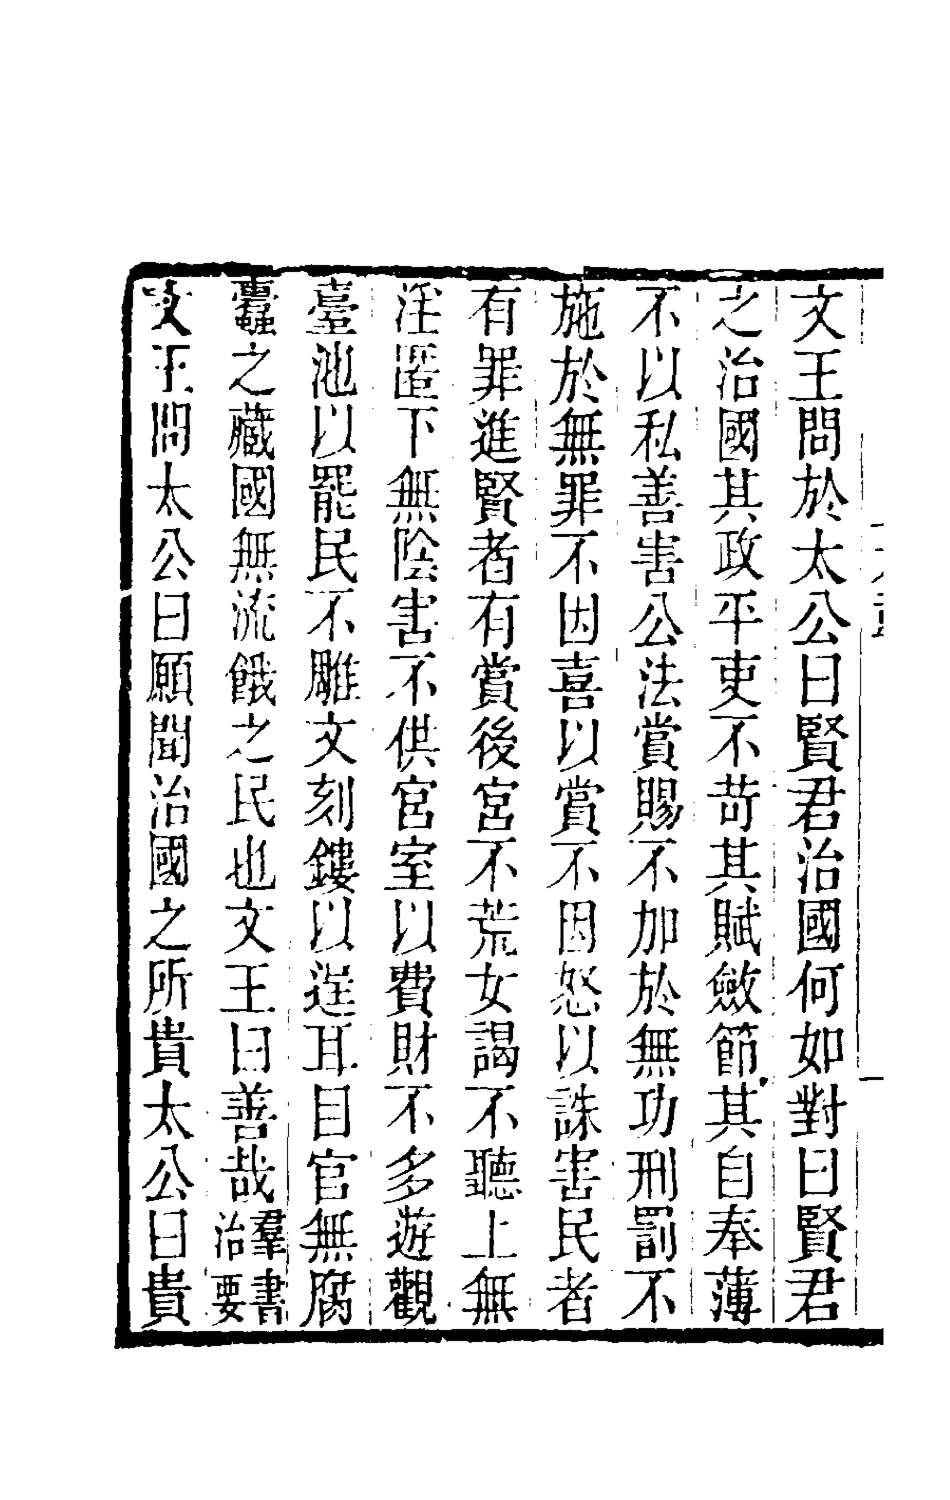 文王問於太公曰賢君治國何如對曰賢君
之治國其政平吏不苛其賦斂節其自奉薄
不以私善害公法賞賜不加於無功刑罰不
施於無罪不因喜以賞不因怒以誅害民者
有罪進賢者有賞後宮不荒女謁不聽上無
淫匿下無陰害不供宮室以費財不多遊觀
臺池以罷民不雕文刻鏤以逞耳目官無腐
蠹之藏國無流餓之民也文王曰善哉羣書治要
文王問太公曰願聞治國之所貴太公曰貴